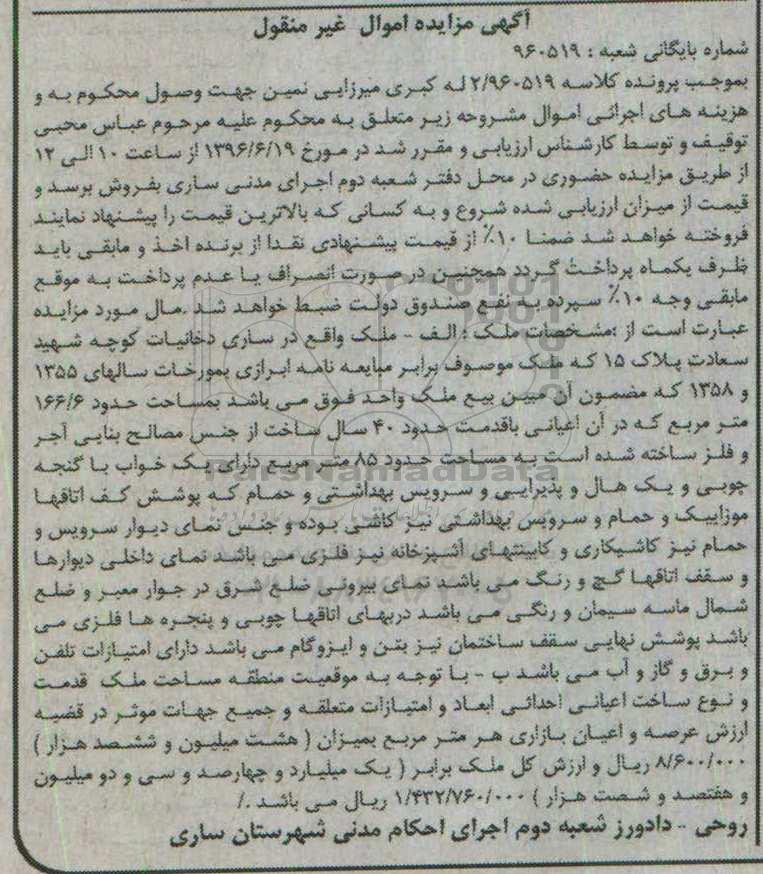 آگهی مزایده اموال غیر منقول
شماره بایگانی شعبه : ۹۶۰۵۱۹
بموجب پرونده کلاسه ۲/۹۶۰۵۱۹ له کبری میرزایی نمین جهت وصول محکوم به و
هزینه های اجرائی اموال مشروحه زیر متعلق به محکوم علیه مرحوم عباس محبی
توقیف و توسط کارشناس ارزیابی و مقرر شد در مورخ ۱۳۹۶/۶/۱۹ از ساعت ۱۰ الی ۱۲
از طریق مزایده حضوری در محل دفتر شعبه دوم اجرای مدنی ساری بفروش برسد و
قیمت از میزان ارزیابی شده شروع و به کسانی که بالاترین قیمت را پیشنهاد نمایند
فروخته خواهد شد ضمنا ۱۰٪ از قیمت پیشنهادی نقدا از برنده اخذ و مابقی باید
ظرف یکماه پرداخت گردد همچنین در صورت انصراف یا عدم پرداخت به موقع
مابقی وجه ۱۰٪ سپرده به نفع صندوق دولت ضبط خواهد شد .مال مورد مزایده
عبارت است از :مشخصات ملک : الف - ملک واقع در ساری دخانیات کوچه شهید
سعادت پلاک ۱۵ که ملک موصوف برابر مبایعه نامه ابرازی بمورخات سالهای ۱۳۵۵
و ۱۳۵۸ که مضمون آن مبین بیع ملک واحد فوق می باشد بمساحت حدود ۱۶۶/۶
متر مربع که در آن اعیانی باقدمت حدود ۴۰ سال ساخت از جنس مصالح بنایی آجر
و فلز ساخته شده است به مساحت حدود ۸۵ متر مربع دارای یک خواب با گنجه
چوبی و یک هال و پذیرایی و سرویس بهداشتی و حمام که پوشش کف اتاقها
موزاییک و حمام و سرویس بهداشتی نیز کاشی بوده و جنس نمای دیوار سرویس و
حمام نیز کاشیکاری و کابینتهای آشپزخانه نیز فلزی می باشد نمای داخلی دیوارها
و سقف اتاقها گچ و رنگ می باشد نمای بیرونی ضلع شرق در جوار معبر و ضلع
شمال ماسه سیمان و رنگی می باشد دربهای اتاقها چوبی و پنجره ها فلزی می
باشد پوشش نهایی سقف ساختمان نیز بتن و ایزوگام می باشد دارای امتیازات تلفن
و برق و گاز و آب می باشد ب - با توجه به موقعیت منطقه مساحت ملک قدمت
و نوع ساخت اعیانی احداثی ابعاد و امتیازات متعلقه و جمیع جهات موثر در قضیه
ارزش عرصه و اعیان بازاری هر متر مربع بمیزان ( هشت میلیون و ششصد هزار )
۸/۶۰۰/۰۰۰ ریال و ارزش کل ملک برابر ( یک میلیارد و چهارصد و سی و دو میلیون
و هفتصد و شصت هزار ) ۱/۴۳۲/۷۶۰/۰۰۰ ریال می باشد ./
روحی - دادورز شعبه دوم اجرای احکام مدنی شهرستان ساری
ParsNamadData